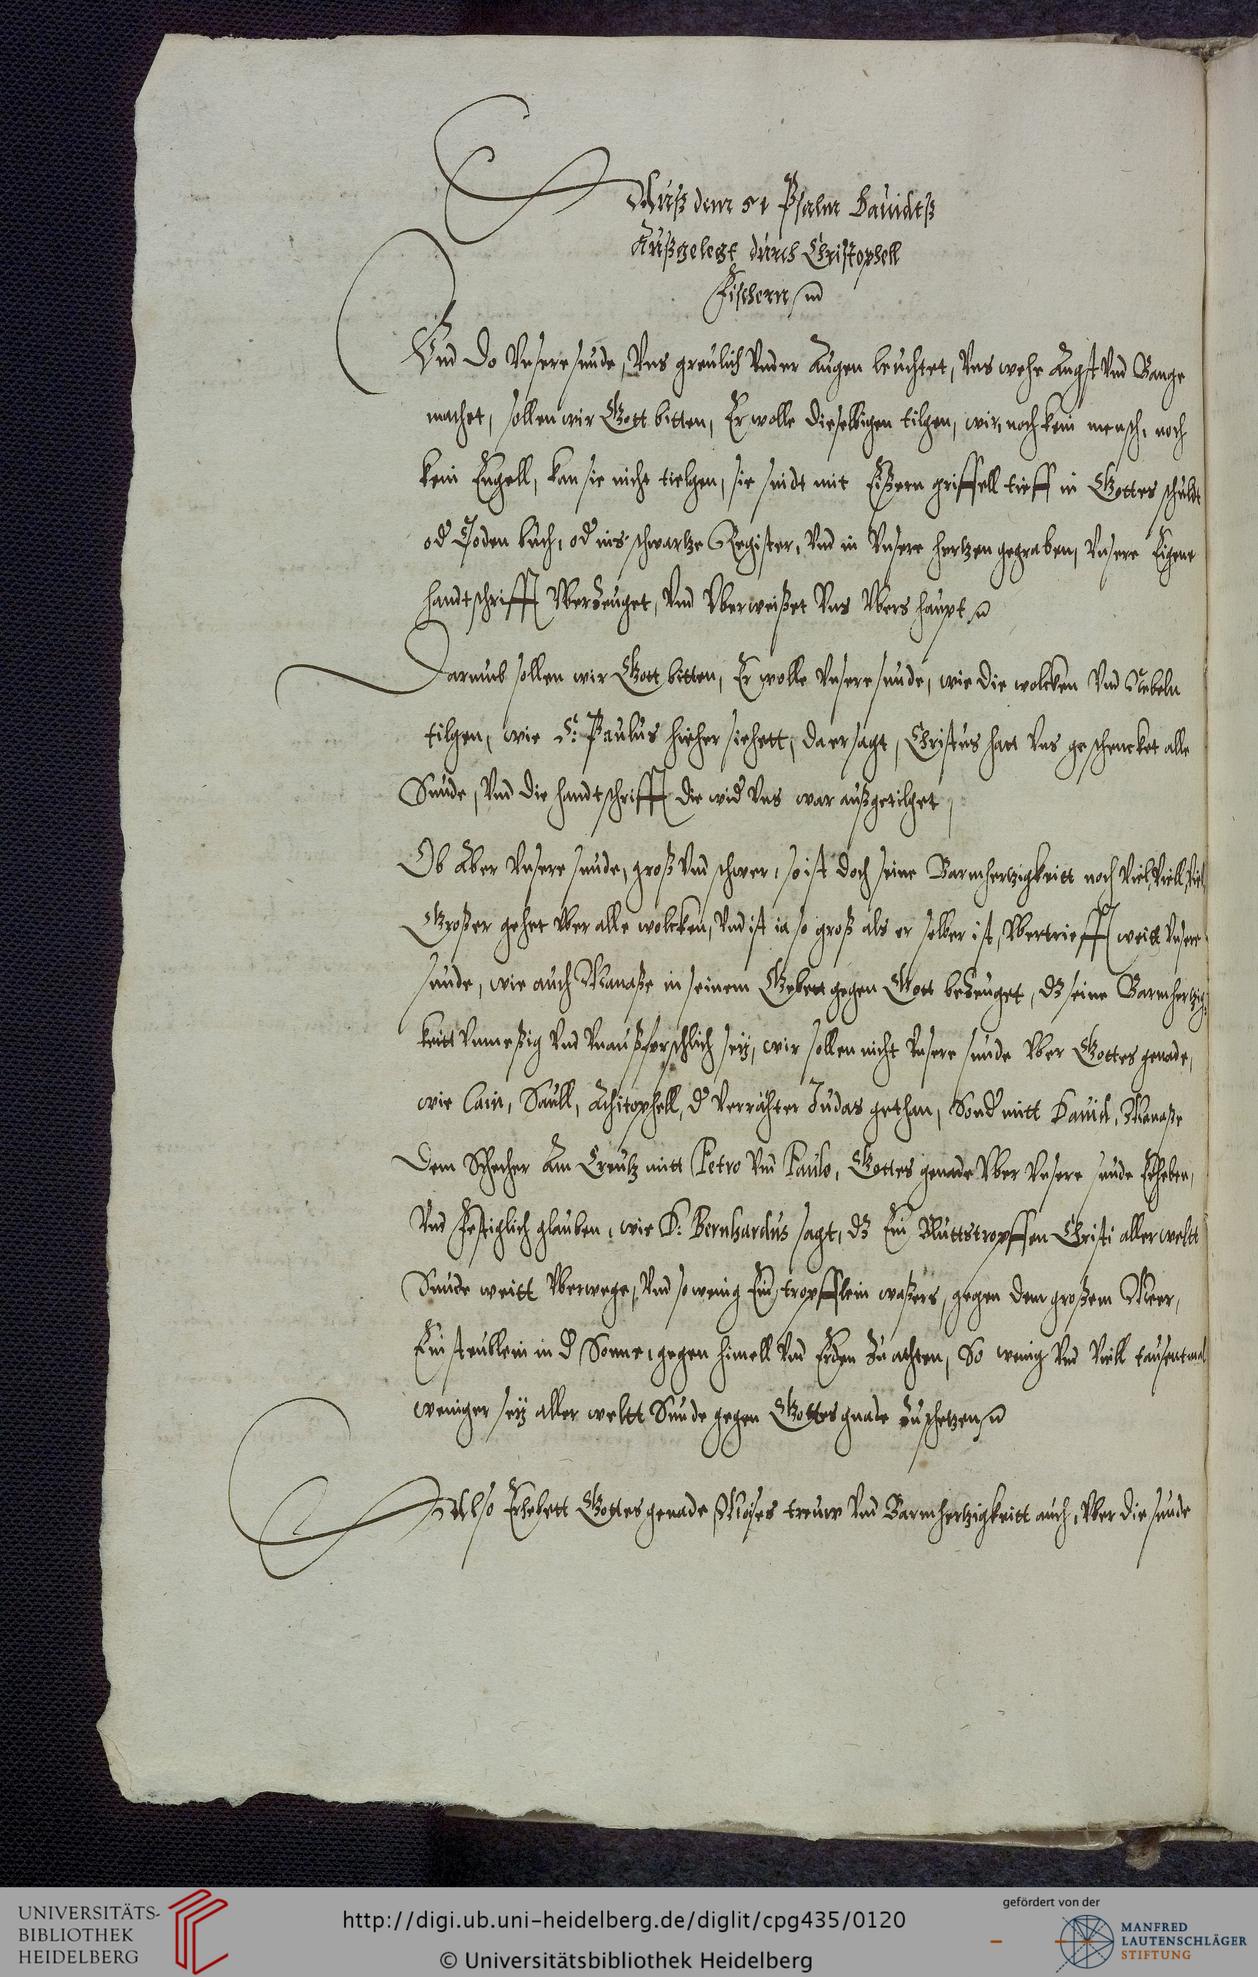 Auß dem 51 Psalm Dauidtß
Außgelegt durch Christophell
Fischern
Vnd Do Vnsere sunde, Vns greulich Vnder Augen leuchtet, Vns wehe Angst Vnd Bange
machet, sollen wir Gott bitten, Er wolle dieselbigen tilgen, wir, noch kein mensch, noch
kein Engell, kan sie nicht tielgen, sie sindt mit Eißern griffell tieff in Gottes schuldt
od Toden buch, od ins schwartze Register, Vnd in Vnsere hertzen gegraben, Vnsere Eigene
handtschrifft Vberzeuget, Vnd Vberweißet Vns Vbers haupt
Darumb sollen wir Gott bitten, Er wolle Vnsere sunde, wie die wolcken Vnd Nebeln
tilgen, wie S: Paulus hieher siehett, da er sagt, Christus hatt Vns geschencket alle
Sunde, Vnd die handtschrifft die wid Vns war außgetilget,
Ob Aber Vnsere sunde, groß Vnd schwer, so ist doch seine Barmhertzigkeitt noch Viel, Viell, Viel
Großer gehet Vber alle wolcken, Vnd ist ia so groß als er selber ist, Vbertrifft weitt Vnsere
sunde, wie auch Manaße in seinem Gebett gegen Gott bezeuget, dz seine Barmhertzig:
keitt Vnmeßig Vnd Vnaußforschlich seÿ, wir sollen nicht Vnsere sunde Vber Gottes genade,
wie Cain, Saull, Achitophell, d Verrähter Judas gethan, Sond mitt Dauid, Manaße
Dem Schecher Am Creutz mitt Petro Vnd Paulo, Gottes genade Vber Vnsere sunde Erheben,
Vnd festiglich glauben, wie D: Bernhardus sagt, dz Ein Bluttstropffen Christi aller weltt
Sunde weitt Vberwege, Vnd so wenig Ein tropfflein waßers, gegen dem großem Meer,
Ein steublein in d Sonne, gegen himell Vnd Erden zu achten, So wenig Vnd Viell tausentmal
weniger seÿ aller weltt Sunde gegen Gottes gnade zu schetzen
Also Erhebett Gottes genade Moses treuw Vnd Barmhertzigkeitt auch, Vber die sunde
UNIVERSITÄTS-
BIBLIOTHEK
HEIDELBERG
http://digi.ub.uni-heidelberg.de/diglit/cpg435/0120
© Universitätsbibliothek Heidelberg
gefördert von der
MANFRED
LAUTENSCHLÄGER
STIFTUNG